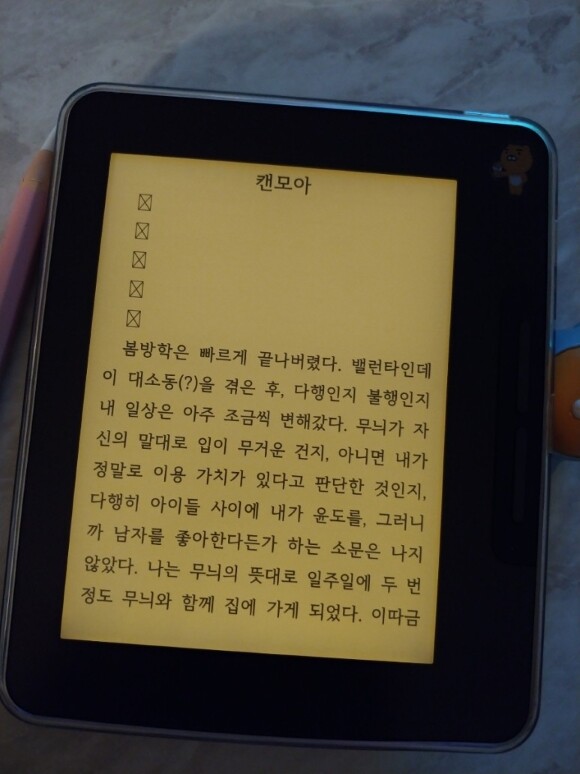 캔모아
봄방학은 빠르게 끝나버렸다. 밸런타인데
이 대소동(?)을 겪은 후, 다행인지 불행인지
내 일상은 아주 조금씩 변해갔다. 무늬가 자
신의 말대로 입이 무거운 건지, 아니면 내가
정말로 이용 가치가 있다고 판단한 것인지,
다행히 아이들 사이에 내가 윤도를, 그러니
까 남자를 좋아한다든가 하는 소문은 나지
않았다. 나는 무늬의 뜻대로 일주일에 두 번
정도 무늬와 함께 집에 가게 되었다. 이따금